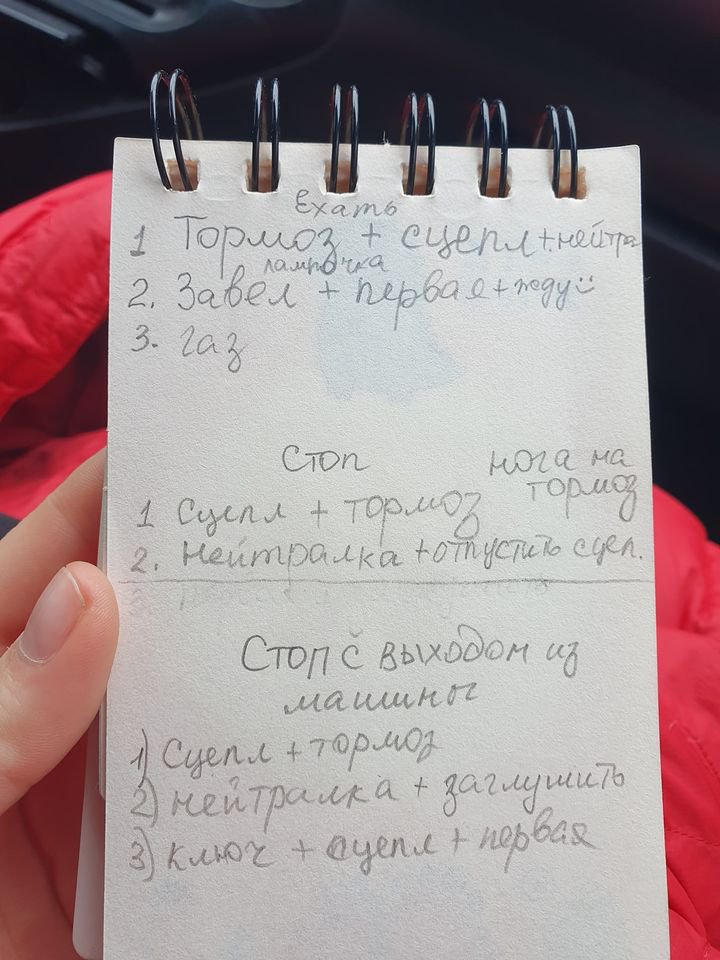 Ехать
1 Тормоз + сцепл + нейтра
лампочка
2. Завел + первая + жду
3. газ
Стоп
нога на
тормоз
1 Сцепл + тормоз
2. нейтралка + отпустить сцеп.
3.
Стоп с выходом из
машины
1) Сцепл + тормоз
2) нейтралка + заглушить
3) ключ + сцепл + первая